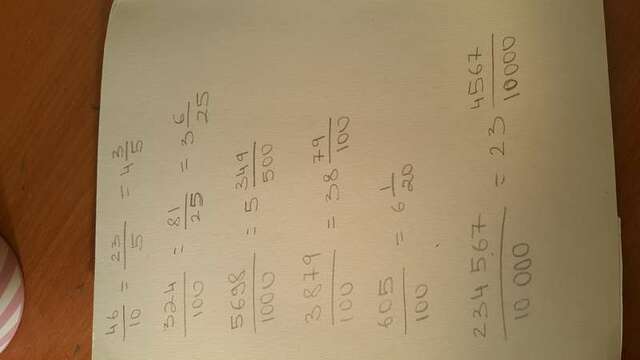 46/10 = 23/5 = 4 3/5
324/100 = 81/25 = 3 6/25
5698/1000 = 5 349/500
3879/100 = 38 79/100
605/100 = 6 1/20
234 567/10 000 = 23 4567/10000